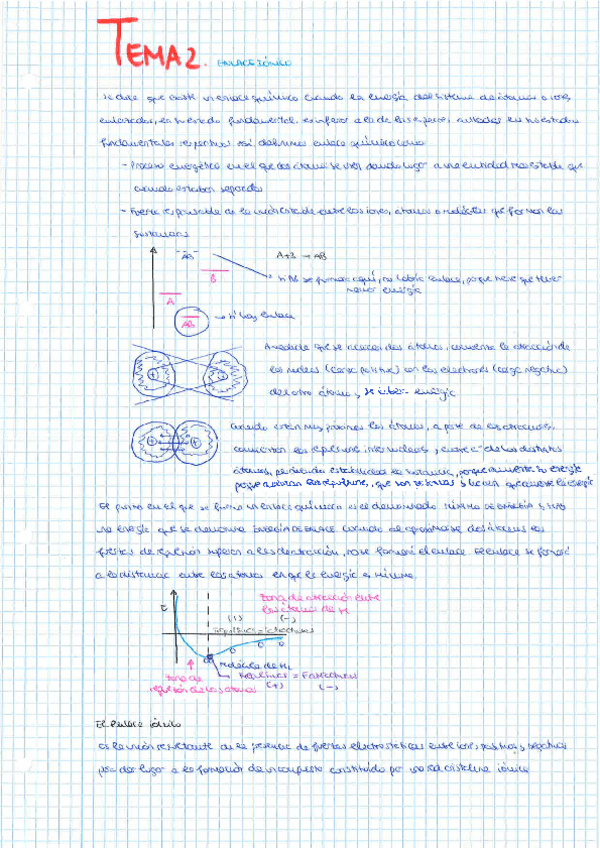 TEMA 2. ENLACE IÓNICO
se dice que existe un enlace químico cuando la energía del sistema de átomos o iones,
enlazados, en su estado fundamental, es inferior a la de los especies, aisladas en su estado
fundamental respectivos así definimos enlace químico como
- Proceso energético en el que dos átomos se unen dando lugar a una entidad más estable que
cuando estaban separados
- Fuerza responsable de la unión estable entre los iones, átomos o moléculas que forman las
sustancias
AB
A+B → AB
B
A
AB
si AB se formara aquí, no habría enlace, porque tiene que tener
menor energía
→ sí hay enlace
A medida que se acercan dos átomos, aumenta la atracción de
los núcleos (carga positiva) con los electrones (carga negativa)
del otro átomo, se libera energía
Cuando están muy próximos los átomos, a pesar de las atracciones,
aumentan las repulsiones, internucleares, y entre e⁻ de los distintos
átomos, perdiendo estabilidad la sustancia, porque aumenta su energía
porque dominan las repulsiones, que son y hacen que aumente la energía
El punto en el que se forma un enlace químico es el denominado mínimo de energía y tiene
una energía que se denomina ENERGÍA DE ENLACE cuando al aproximarse dos átomos las
fuerzas de repulsión superan a las de atracción, no se formará el enlace. El enlace se formará
a la distancia entre los átomos en que la energía es mínima.
E
Zona de atracción entre
los átomos de H
(+) (-)
repulsivas = atractivas
Molécula de H₂
Zona de
repulsión de los átomos
Frepulsivas = Fatractivas
(+) (-)
El enlace iónico
es la unión resultante de la presencia de fuerzas electrostáticas entre iones, positivos y negativos
para dar lugar a la formación de un compuesto constituido por una red cristalina iónica